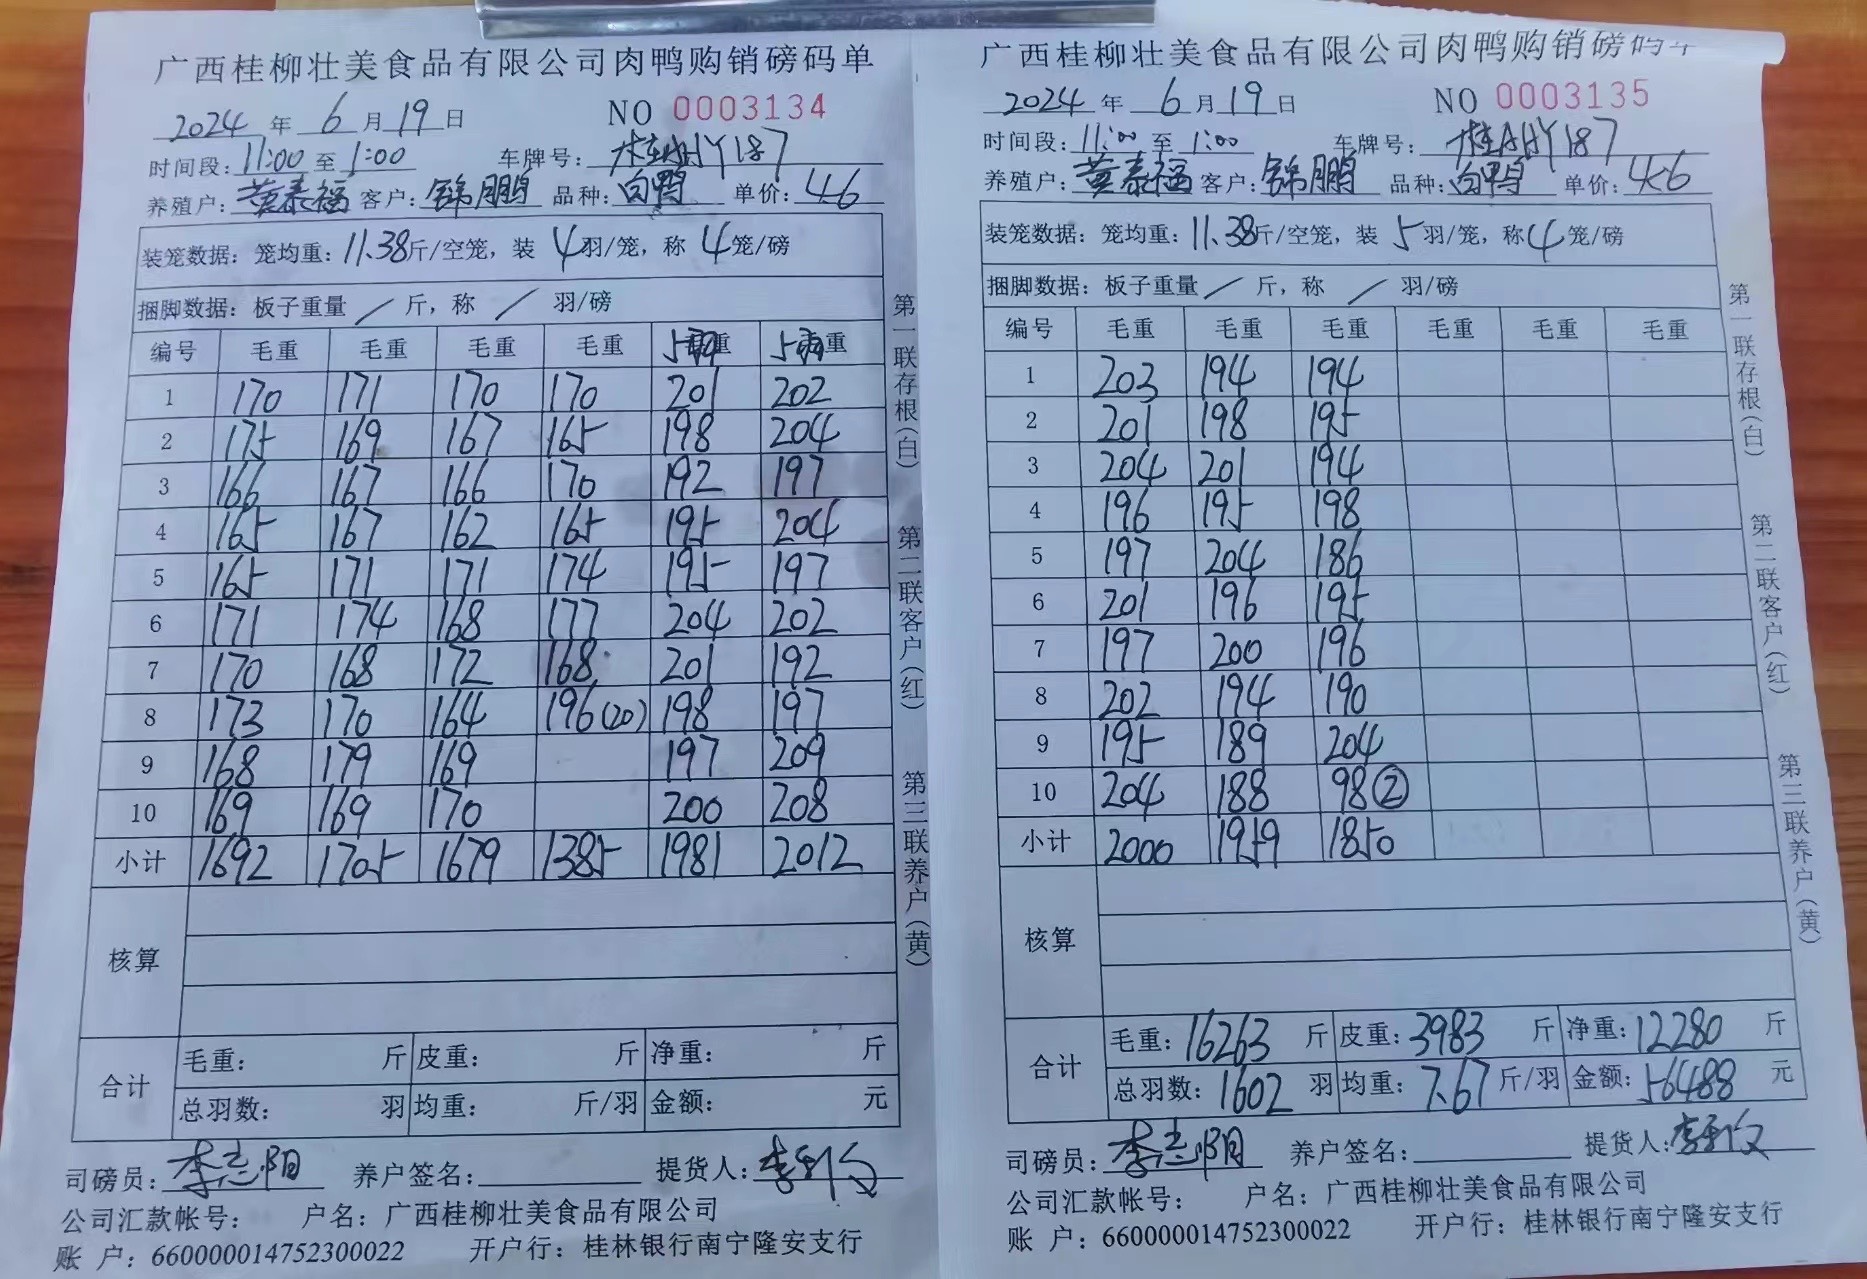 广西桂柳壮美食品有限公司肉鸭购销磅码单
2024 年 6 月 19 日 NO 0003134
时间段: 11:00 至 1:00 车牌号: 桂AHY187
养殖户: 黄泰福 客户: 锦鹏 品种: 白鸭 单价: 4.6
装笼数据: 笼均重: 11.38 斤/空笼, 装 4 羽/笼, 称 4 笼/磅
捆脚数据: 板子重量 / 斤, 称 / 羽/磅
编号 毛重 毛重 毛重 毛重 5羽重 5羽重
1 170 171 170 170 201 202
2 175 169 167 165 198 204
3 166 167 166 170 192 197
4 165 167 162 165 195 204
5 165 171 171 174 195 197
6 171 174 168 177 204 202
7 170 168 172 168 201 192
8 173 170 164 196(20) 198 197
9 168 179 169 197 209
10 169 169 170 200 208
小计 1692 1705 1679 1385 1981 2012
核算
合计 毛重: 斤 皮重: 斤 净重: 斤
总羽数: 羽 均重: 斤/羽 金额: 元
司磅员: 李志阳 养户签名: 提货人:
公司汇款帐号: 户名: 广西桂柳壮美食品有限公司
账 户: 660000014752300022 开户行: 桂林银行南宁隆安支行
第一联存根(白) 第二联客户(红) 第三联养户(黄)
广西桂柳壮美食品有限公司肉鸭购销磅码单
2024 年 6 月 19 日 NO 0003135
时间段: 11:00 至 1:00 车牌号: 桂AHY187
养殖户: 黄泰福 客户: 锦鹏 品种: 白鸭 单价: 4.6
装笼数据: 笼均重: 11.38 斤/空笼, 装 5 羽/笼, 称 4 笼/磅
捆脚数据: 板子重量 / 斤, 称 / 羽/磅
编号 毛重 毛重 毛重 毛重 毛重 毛重
1 203 194 194
2 201 198 195
3 204 201 194
4 196 195 198
5 197 204 186
6 201 196 195
7 197 200 196
8 202 194 190
9 195 189 204
10 204 188 98②
小计 2000 1959 1850
核算
合计 毛重: 16263 斤 皮重: 3983 斤 净重: 12280 斤
总羽数: 1602 羽 均重: 7.67 斤/羽 金额: 56488 元
司磅员: 李志阳 养户签名: 提货人:
公司汇款帐号: 户名: 广西桂柳壮美食品有限公司
账 户: 660000014752300022 开户行: 桂林银行南宁隆安支行
第一联存根(白) 第二联客户(红) 第三联养户(黄)